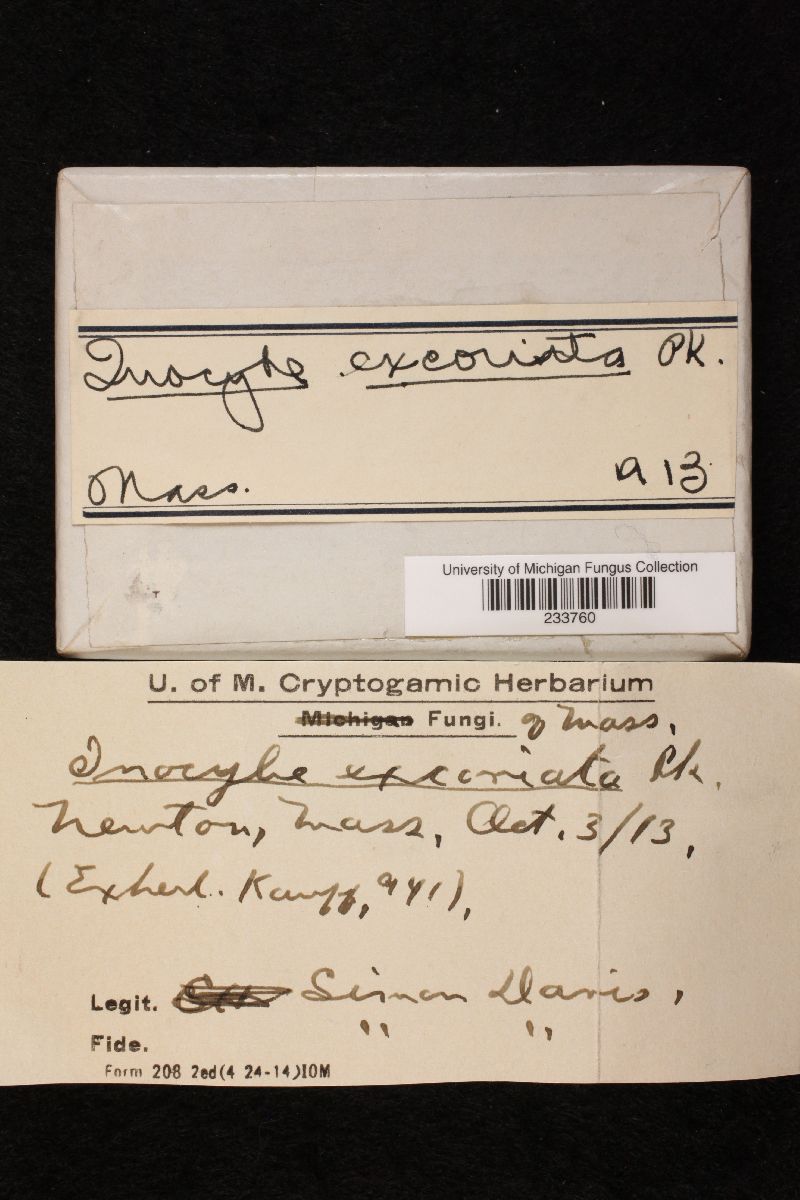 Inocybe excoriata Pk.
Mass. 913
University of Michigan Fungus Collection
233760
U. of M. Cryptogamic Herbarium
Michigan Fungi. of Mass.
Inocybe excoriata Pk.
Newton, Mass, Oct. 3/13,
(Exherb. Kauff, 941),
Legit. Simon Davis,
Fide. " "
Form 208 2ed(4 24-14)10M